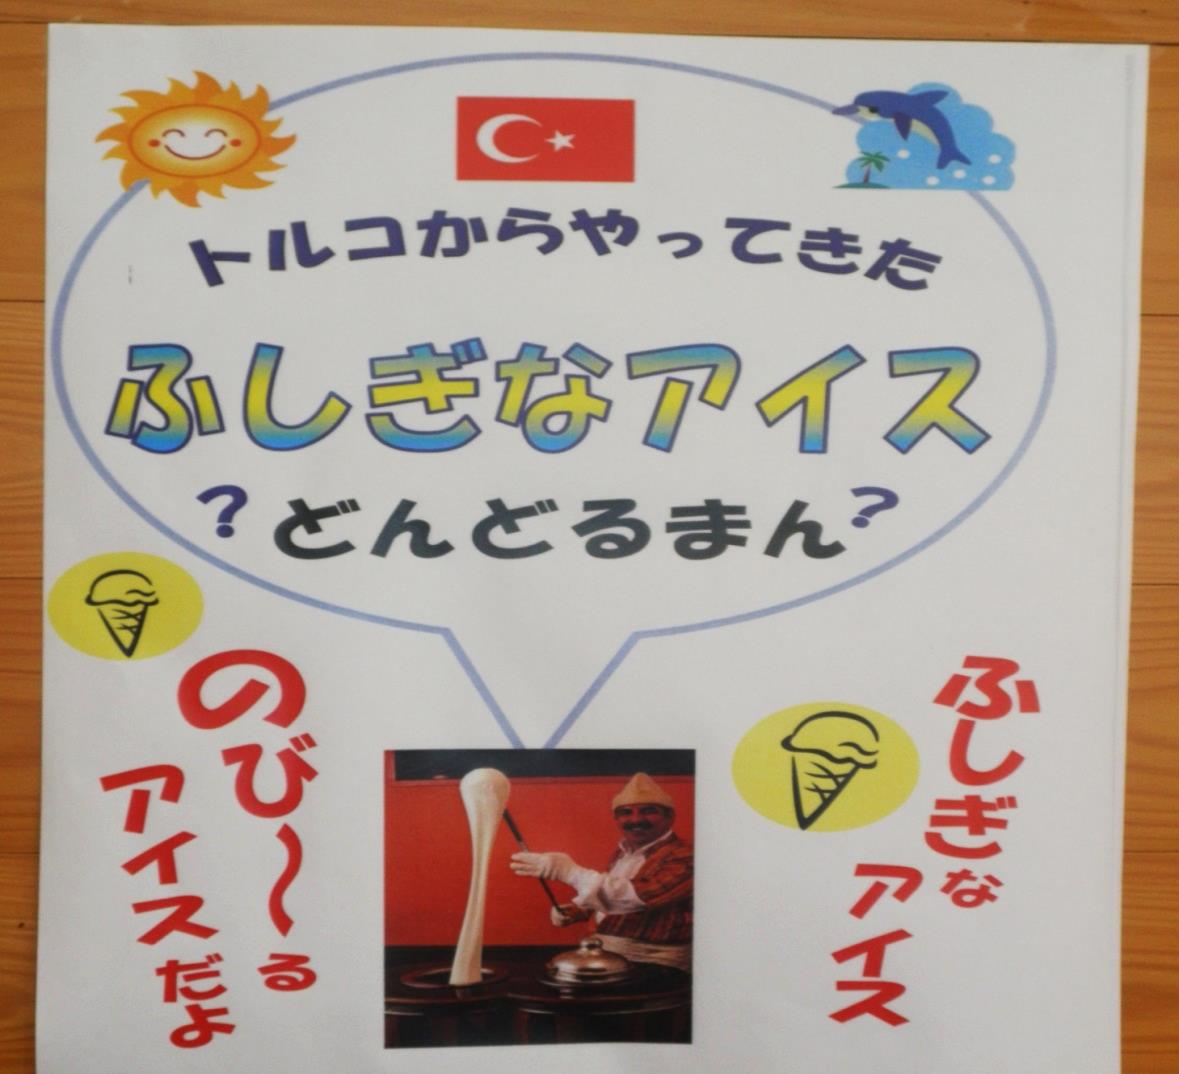 トルコからやってきた
ふしぎなアイス
?どんどるまん?
ふしぎな
アイス
のび〜る
アイスだよ